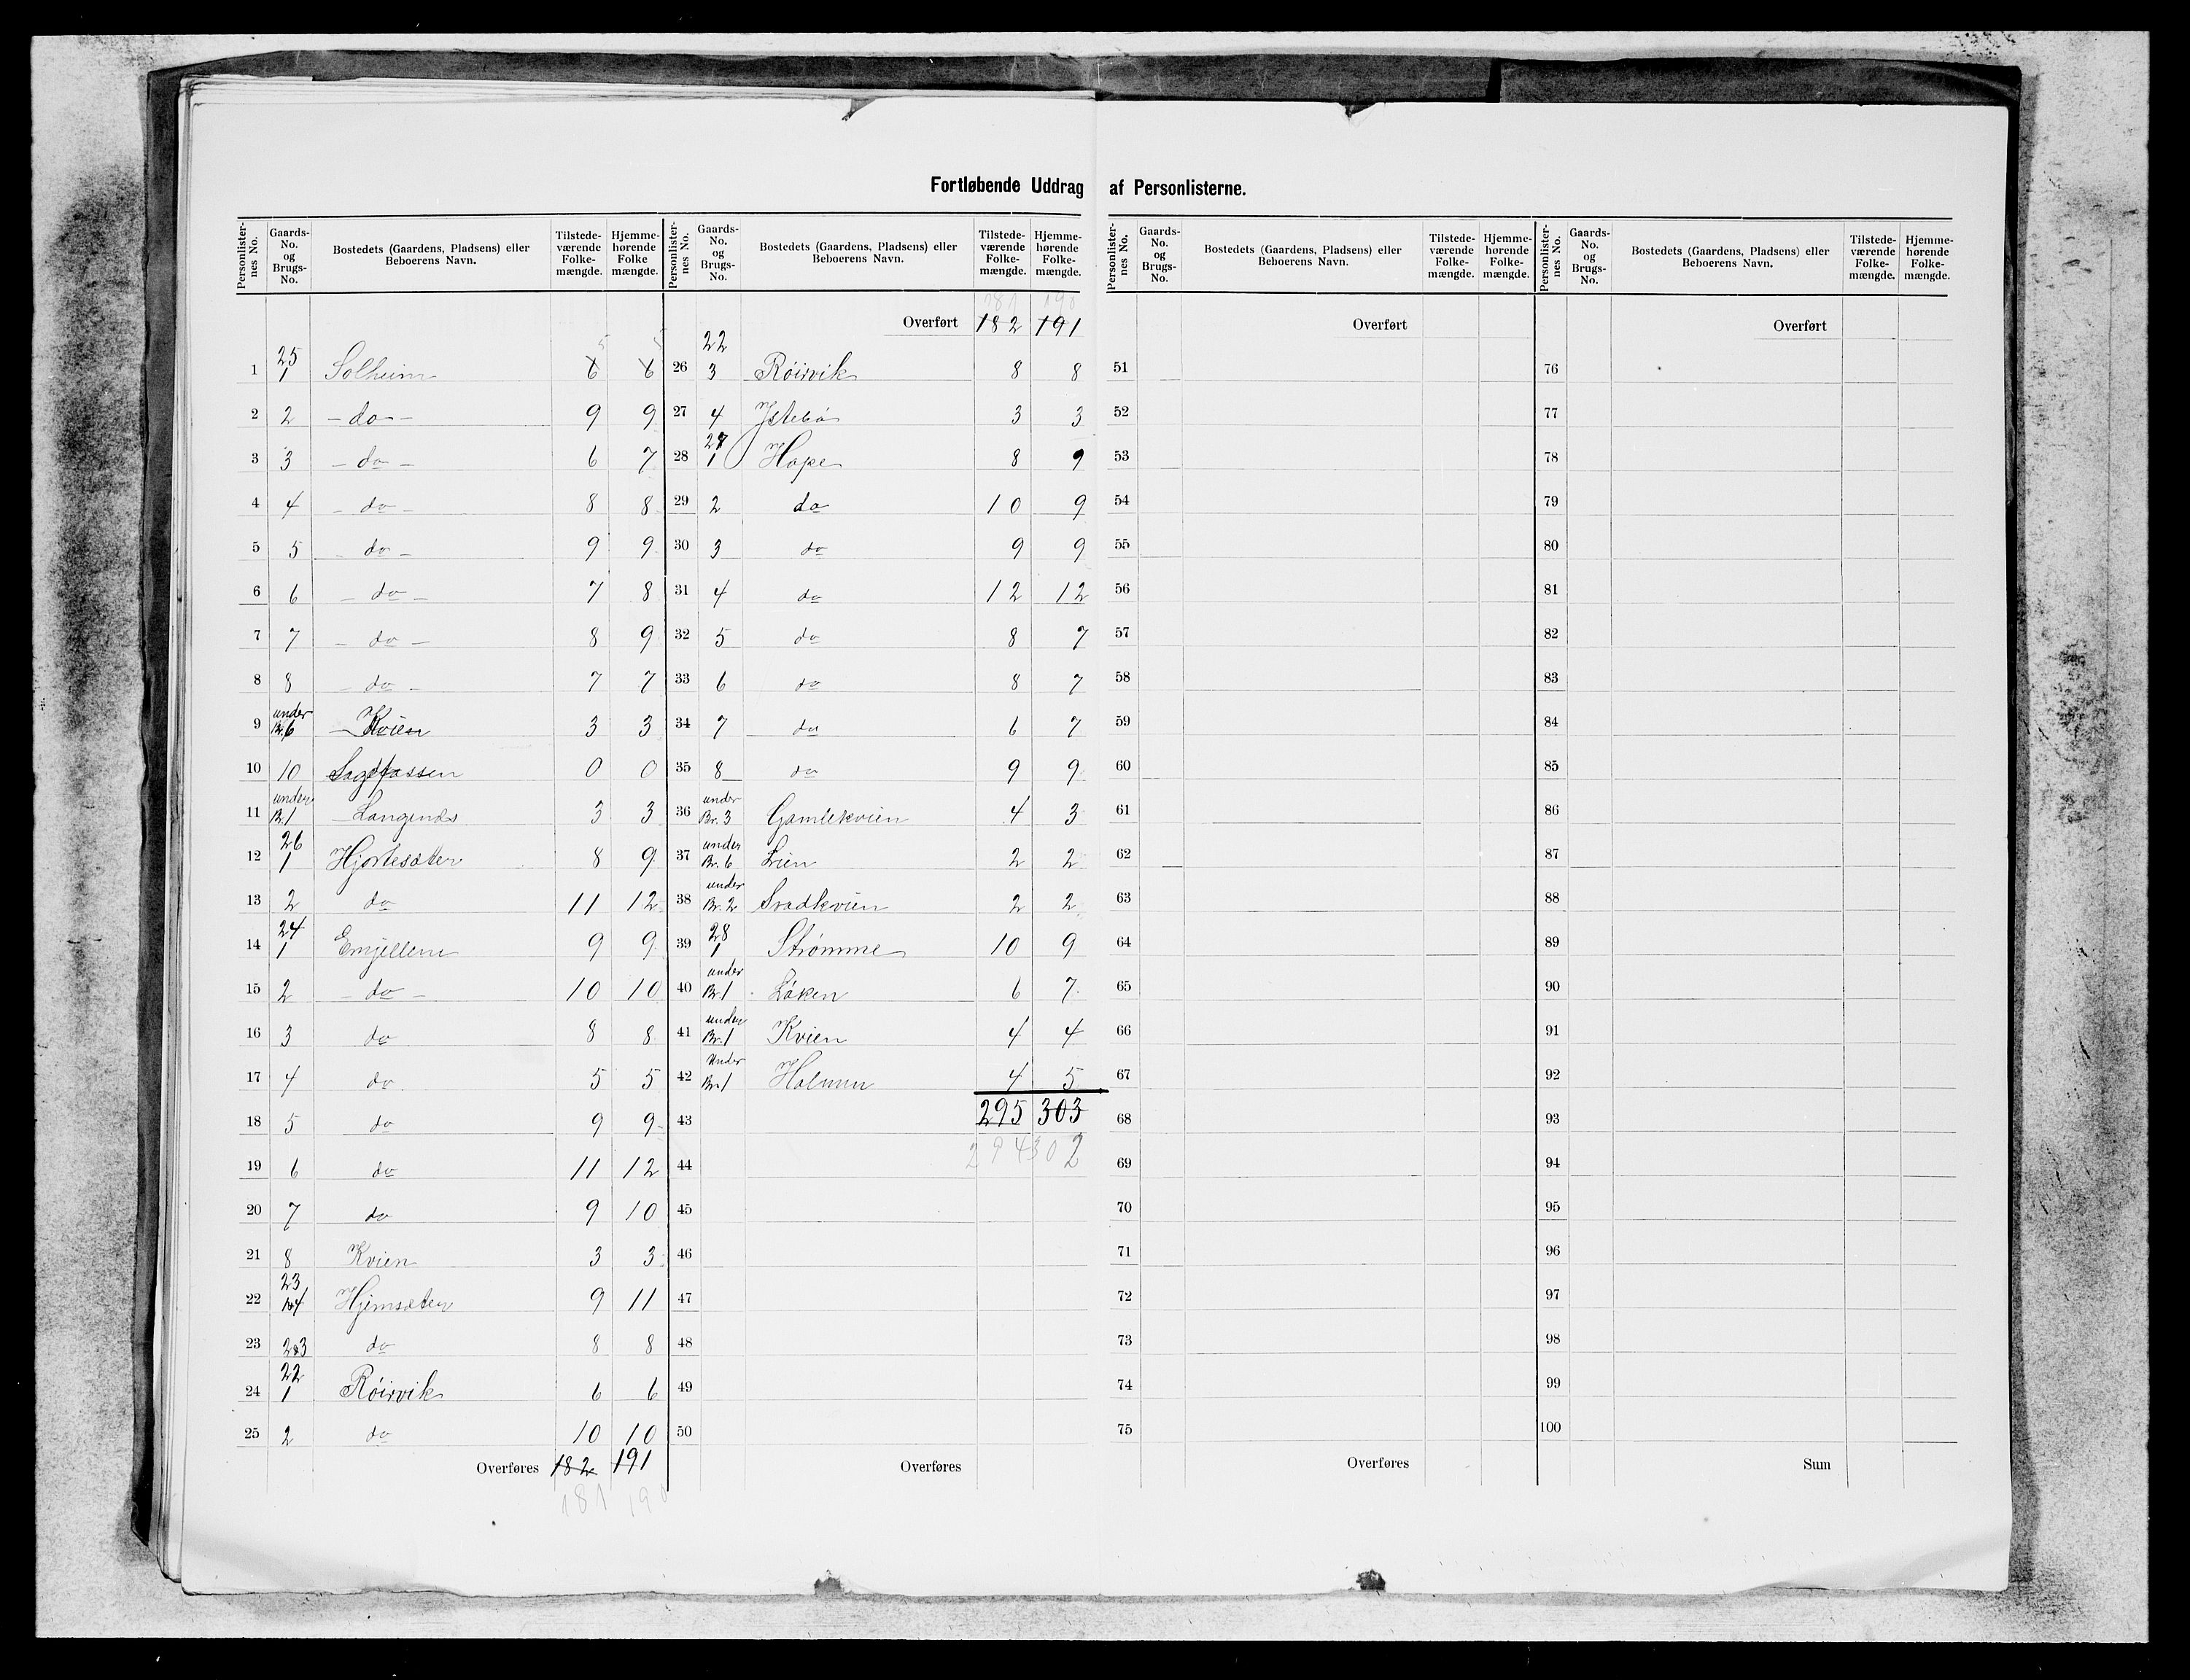 Fortløbende Uddrag af Personlisterne.
Personlisternes No. Gaards-No. og Brugs-No. Bostedets (Gaardens, Pladsens) eller Beboerens Navn. Tilstedeværende Folkemængde. Hjemmehørende Folkemængde.
1 25 1 Solheim 6 5 6 5
2 2 - do - 9 9
3 3 - do - 6 7
4 4 - do - 8 8
5 5 - do - 9 9
6 6 - do - 7 8
7 7 - do - 8 9
8 8 - do - 7 7
9 under Br. 6 Kvien 3 3
10 10 0 0
11 under Br. 1 Langenes 3 3
12 26 1 Hjortesæter 8 9
13 2 do 11 12
14 24 1 Emjellem 9 9
15 2 - do - 10 10
16 3 do 8 8
17 4 do 5 5
18 5 do 9 9
19 6 do 11 12
20 7 do 9 10
21 8 Kvien 3 3
22 23 1&4 Hjemsæter 9 11
23 2&3 do 8 8
24 22 1 Röirvik 6 6
25 2 do 10 10
Overføres 182 191
181 190
Personlisternes No. Gaards-No. og Brugs-No. Bostedets (Gaardens, Pladsens) eller Beboerens Navn. Tilstedeværende Folkemængde. Hjemmehørende Folkemængde.
181 190
Overført 182 191
26 22 3 Röirvik 8 8
27 4 Istebö 3 3
28 27 1 Hope 8 9
29 2 do 10 9
30 3 do 9 9
31 4 do 12 12
32 5 do 8 7
33 6 do 8 7
34 7 do 6 7
35 8 do 9 9
36 under Br. 3 Gamlekvien 4 3
37 under Br. 6 Lien 2 2
38 under Br. 2 Svadkvien 2 2
39 28 1 Strømme 10 9
40 under Br. 1 Löken 6 7
41 under Br. 1 Kvien 4 4
42 Under Br. 1 Holmen 4 5
43 295 303
44 294 302
45
46
47
48
49
50
Overføres
Personlisternes No. Gaards-No. og Brugs-No. Bostedets (Gaardens, Pladsens) eller Beboerens Navn. Tilstedeværende Folkemængde. Hjemmehørende Folkemængde.
Overført
51
52
53
54
55
56
57
58
59
60
61
62
63
64
65
66
67
68
69
70
71
72
73
74
75
Overføres
Personlisternes No. Gaards-No. og Brugs-No. Bostedets (Gaardens, Pladsens) eller Beboerens Navn. Tilstedeværende Folkemængde. Hjemmehørende Folkemængde.
Overført
76
77
78
79
80
81
82
83
84
85
86
87
88
89
90
91
92
93
94
95
96
97
98
99
100
Sum